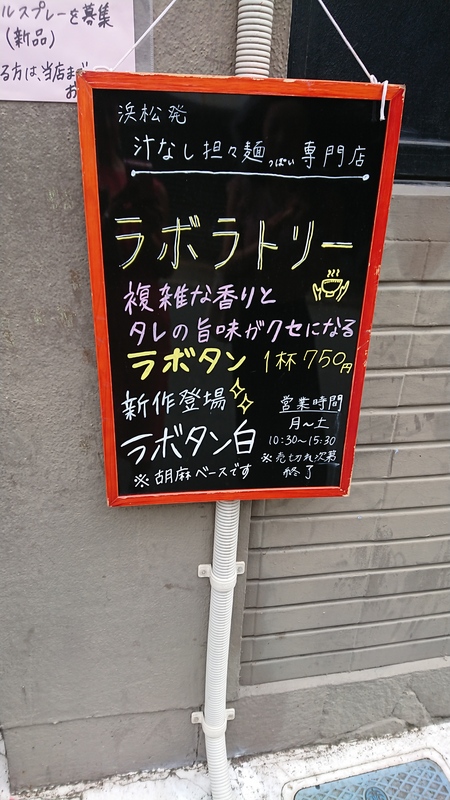 ルスプレーを募集
(新品)
る方は、当店まで
お
浜松発
汁なし担々麺っぽい専門店
ラボラトリー
複雑な香りと
タレの旨味がクセになる
ラボタン 1杯750円
新作登場
ラボタン白
※胡麻ベースです
営業時間
月〜土
10:30〜15:30
※売切れ次第
終了